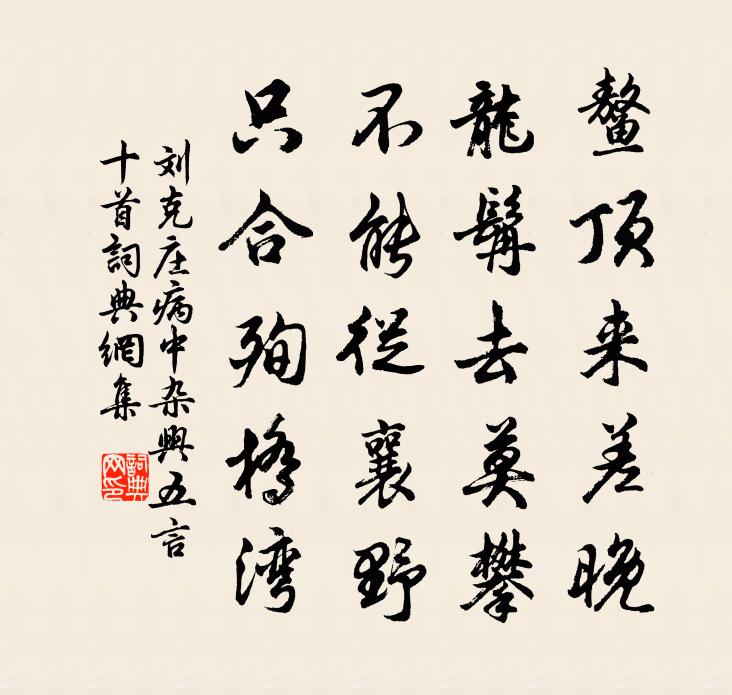 鳌顶来差晚
龍髯去莫攀
不能從襄野
只合殉橋湾
刘克庄病中杂興五言
十首詞典網集
詞典
网印